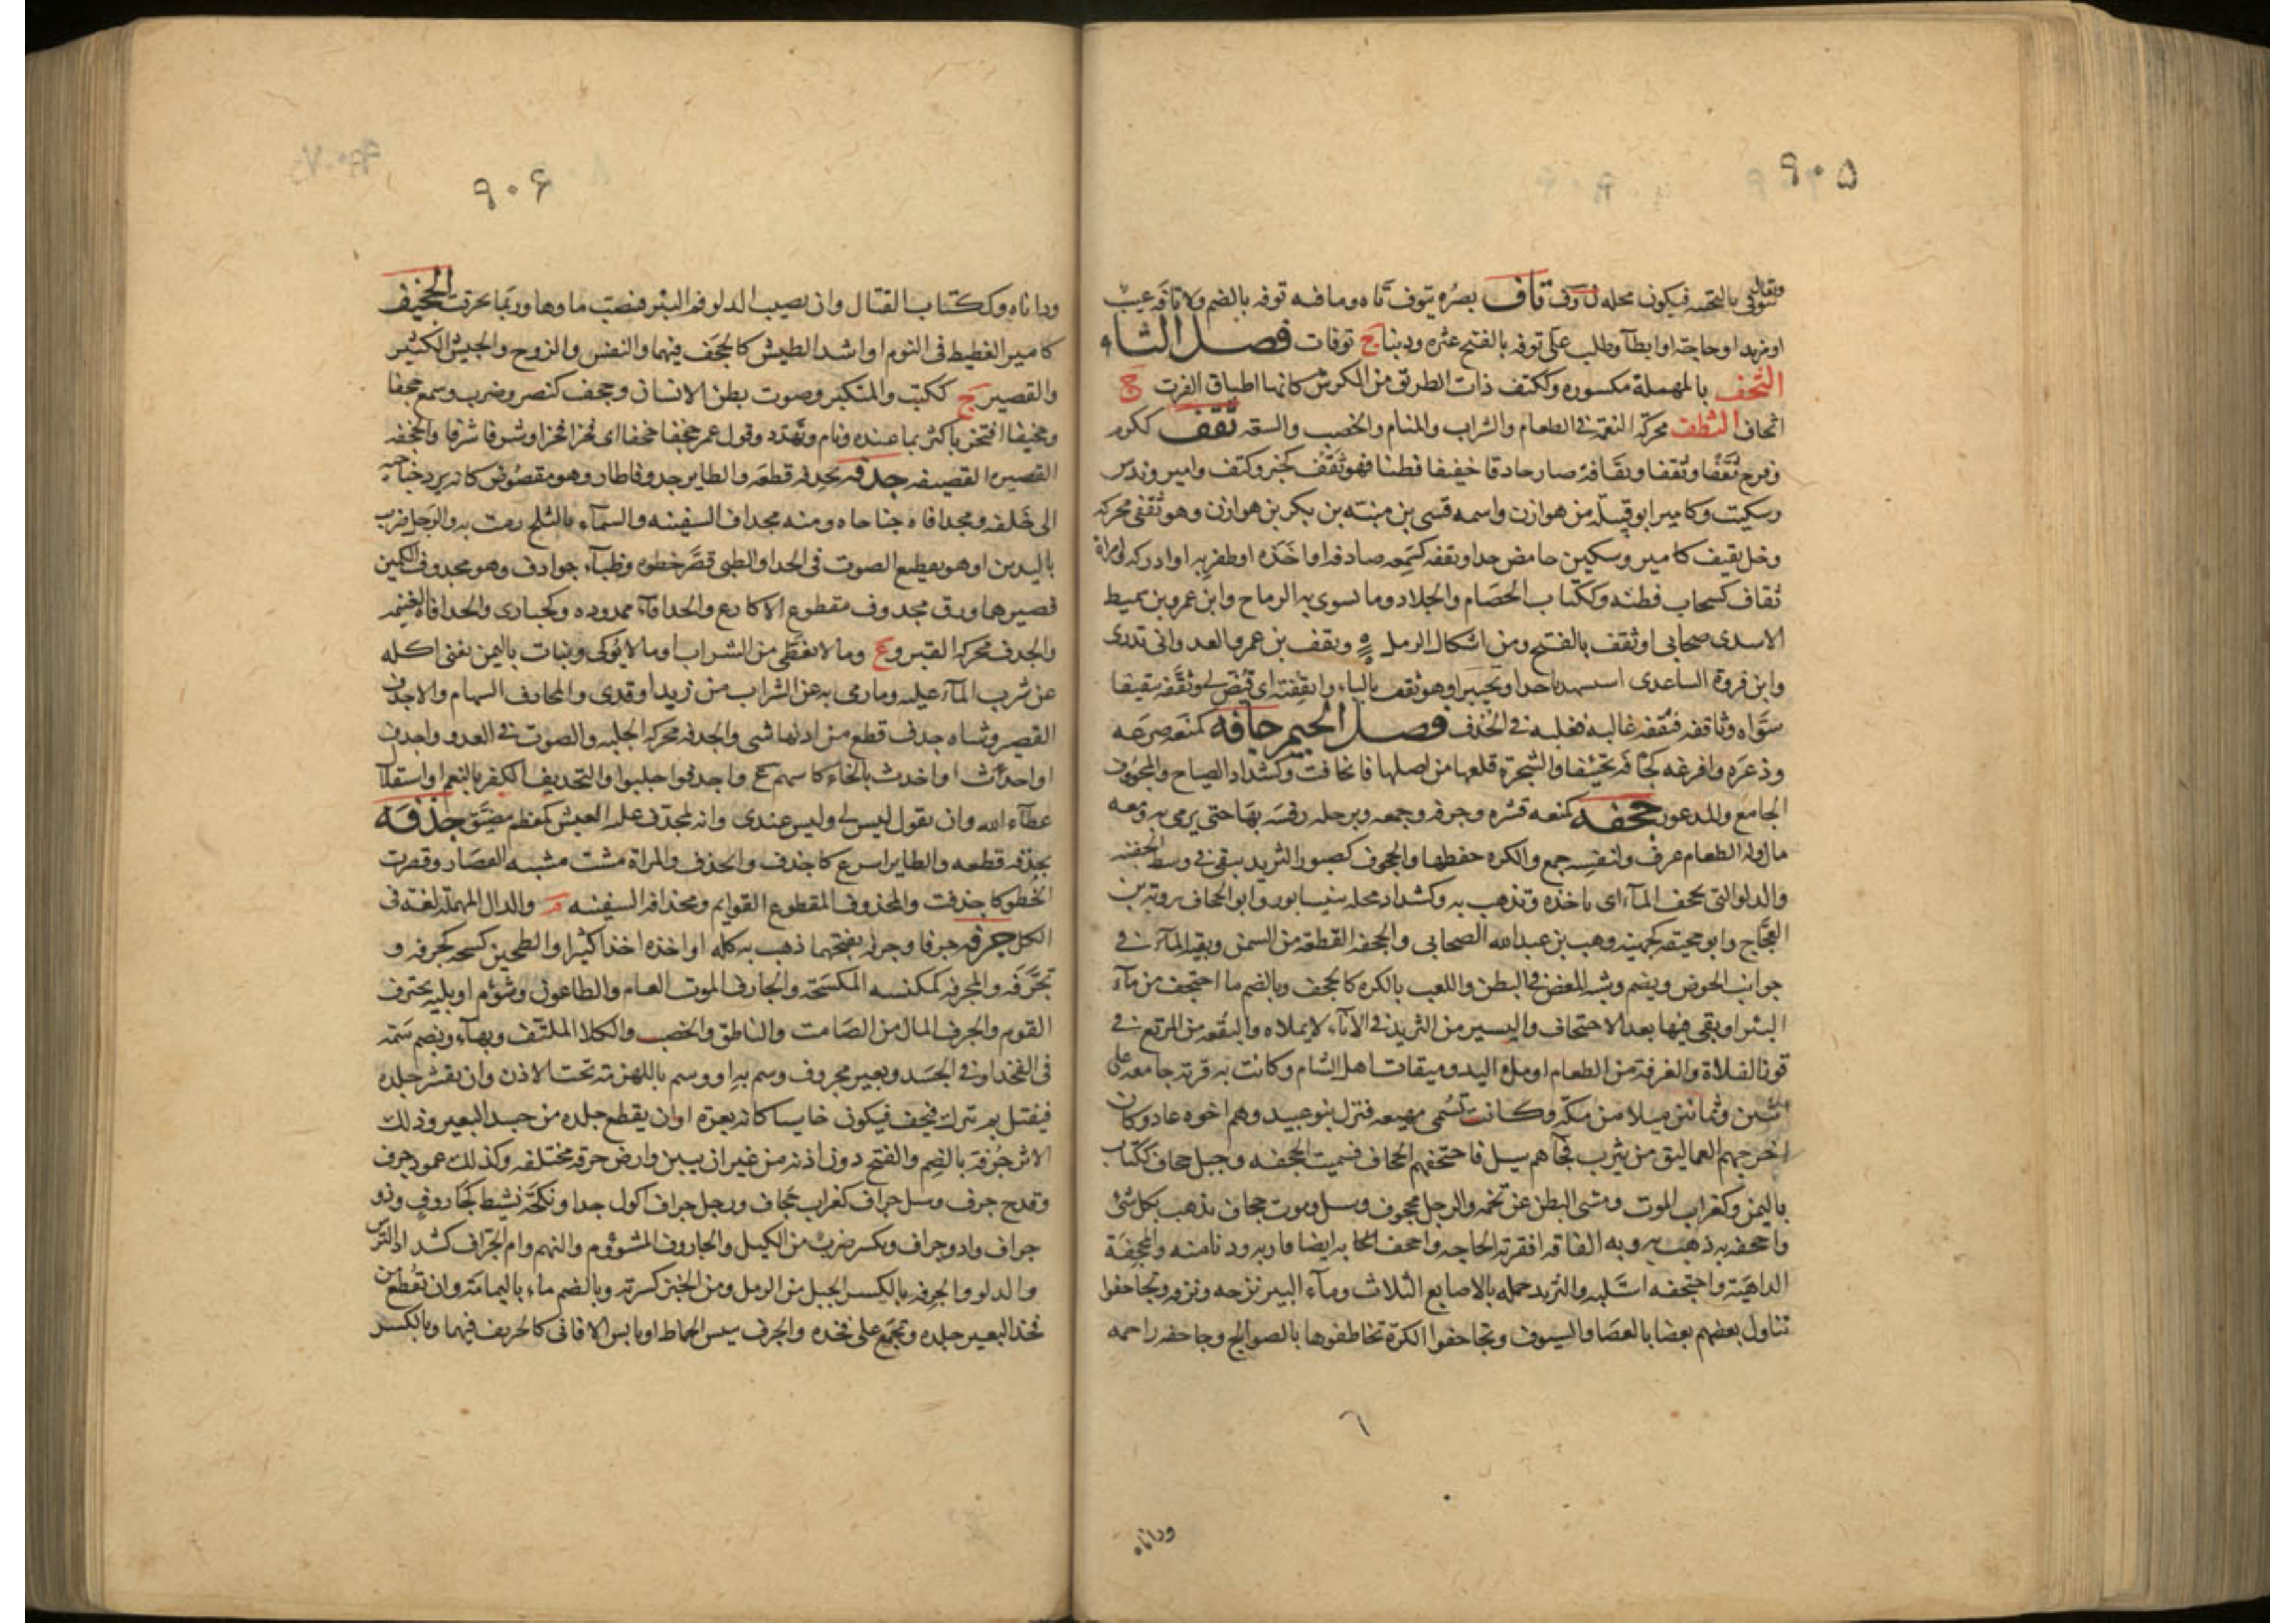 ٩٠٥
بالتحتيه فيكون محله ل وف تاف بصره يتوف تاه وما فيه توفه بالضم ولا تافه عيب
او مزيد او حاجة او ابطآ وطلب على توفه بالفتح عثره وذنبا ج توفات فصل الثاء
الثحف بالمهملة مكسوره وككتف ذات الطرائق من الكرش كانها اطباق الفرث ج
اثحاف الثطف محركة النعمة في الطعام والشراب والمنام والخصب والسعة ثقف ككرم
وفرح ثقفا وثقفا وثقافة صار حاذقا خفيفا فطنا فهو ثقف كحبر وكتف وامير وندس
وسكيت وكامير ابو قبيلة من هوازن واسمه قسى بن منبه بن بكر بن هوازن وهو ثقفى محركه
وخل ثقيف كامير وسكين حامض جدا وثقفه كسمعه صادفه او اخذه او ظفر به او ادركه وامراة
ثقاف كسحاب فطنه وككتاب الخصام والجلاد وما تسوى به الرماح وابن عمرو بن سميط
الاسدى صحابى او ثقف بالفتح ومن اشكال الرمل وثقف بن عمرو العدوانى بدرى
وابن فروة الساعدى استشهد باحد او بخيبر او هو ثقب بالباء واثقفته اى قيض لى وثقفه تثقيفا
سواه وثاقفه فثقفه غالبه فغلبه في الحذف فصل الجيم جافه كمنعه صرعه
وذعره وافزعه كجافه تجئيفا والشجرة قلعها من اصلها فانجافت وكشداد الصياح والمجووف
الجايع والمذعور جحفه كمنعه قشره وجرفه وجمعه وبرجله رفسه بها حتى يرمى به ومعه
مال وله الطعام غرف ولنفسه جمع والكره خطفها والجحوف كصبور الثريد يبقى في وسط الجفنه
والدلو التى تجحف المآء اى تاخذه وتذهب به وكشداد محله بنيسابور وابو الجحاف روبة بن
العجاج وابو جحيفة كجهينه وهب بن عبد الله الصحابى والجحفه القطعة من السمن وبقية المآء في
جوانب الحوض ويضم وشبه المغص في البطن واللعب بالكره كالجحف وبالضم ما اجتحف من مآء
البئر او بقى فيها بعد الاجتحاف واليسير من الثريد في الانآء لا يملاه والبقعه من المرتع في
قوز الفلاة والغرفة من الطعام او ملء اليد وميقات اهل الشام وكانت به قرية جامعه على
اثنين وثمانين ميلا من مكة وكانت تسمى مهيعه فنزل بنو عبيد وهم اخوه عاد وكان
اخرجهم العماليق من يثرب فجآهم سيل فاجتحفهم الجحاف فسميت الجحفه وجبل جحاف ككتاب
باليمن وكغراب الموت ومشى البطن عن تخمه والرجل مجحوف وسيل وموت جحاف يذهب بكل شئ
واجحف به ذهب به وبه الفاقه افقرته الحاجه واجحف به ايضا قاربه ودنا منه والمجحفة
الداهية واجتحفه استلبه والثريد حمله بالاصابع الثلاث ومآء البير نزحه ونزفه وتجاحفوا
تناول بعضهم بعضا بالعصا والسيوف وتجاحفوا الكرة تخاطفوها بالصوالج وجاحفه زاحمه
وداناه
٩٠٦
وداناه وككتاب القتال وان يصيب الدلو فم البئر فنصب ماوها وربما تخرقت الجخيف
كامير الغطيط في النوم او اشد الطيش كالجخف فيهما والنفس والروح والجيش الكثير
والقصير ج ككتب والمتكبر وصوت بطن الانسان وجخف كنصر وضرب وسمع جخفا
وجخيفا افتخر باكثر مما عنده ونام وتهدد وقول عمر جخفا جخفا اى فخرا فخرا وشرفا شرفا والجخفه
القصيره القضيفه جدفه يجدفه قطعه والطاير جدوفا طار وهو مقصوص كانه يرد جناحيه
الى خلفه ومجدافاه جناحاه ومنه مجداف السفينه والسمآء بالثلج رمت به والرجل ضرب
باليدين او هو تقطيع الصوت في الحدا والظبى قصر خطوه وظبآء جوادف وهو مجدوف الكمين
قصيرهما وزق مجدوف مقطوع الاكارع والجدافآء ممدوده وكحبارى والجدافاه الغنيمه
والجدف محركه القبر وع وما لا يغطى من الشراب او ما لا يوكى ونبات باليمن يغنى اكله
عن شرب المآء عليه وما رمى به عن الشراب من زبد او قذى والمجادف السهام والاجدف
القصير وشاه جدفا قطع من اذنها شى والجدفه محركه الجلبه والصوت في العدو واجدف
او اجداث او اجدث بالثاء كاسهم ع واجدفوا جلبوا والتجديف الكفر بالنعم او استقلال
عطاء الله وان تقول ليس لى وليس عندى وانه لمجدف عليه العيش كمعظم مضيق جذفه
يجذفه قطعه والطاير اسرع كاجذف وانجذف والمراة مشت مشيه القصار وقصرت
الخطو كاجذفت والمجذوف المقطوع القوايم ومجذافه السفينه م والدال المهمله لغة في
الكل جرفه جرفا وجرفة بفتحهما ذهب به كله او اخذه اخذا كثيرا والطين كسحه كجرفه و
تجرفه والمجرفه كمكنسه المكسحة والجارف الموت العام والطاعون وشؤم او بليه تجترف
القوم والجرف المال من الصامت والناطق والخصب والكلا الملتف وبهآء ويضم سمه
في الفخذ او في الجسد وبعير مجروف وسم به او وسم باللهزمه تحت الاذن وان يقشر جلده
فيفتل ثم يترك فيجف فيكون جاسيا كانه بعرة او ان يقطع جلده من جسد البعير وذلك
الاثر جرفة بالضم والفتح دون اذنه من غير ان يبين وارض جرفه مختلفه وكذلك عمود جرف
وقدح جرف وسيل جراف كغراب جحاف ورجل جراف اكول جدا ونكحة نشيط كجاروف وذو
جراف واد وجراف ويكسر ضرب من الكيل والجاروف المشؤوم والنهم وام الجراف كشداد الترس
والدلو والجرفه بالكسر الحبل من الرمل ومن الخبز كسرته وبالضم ماء باليمامة وان تقطع من
فخذ البعير جلده وتجمع على فخذه والجرف يبس الحماط او يابس الافانى كالجريف فيهما وبالكسر